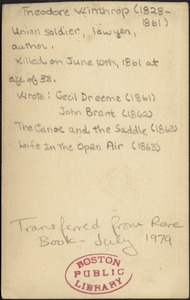 Theodore Winthrop (1828-
1861)
Union soldier, lawyer,
author.
Killed on June 10th, 1861 at
age of 33.
Wrote: Cecil Dreeme (1861)
John Brent (1862)
The Canoe and the Saddle (1863)
Life In The Open Air (1863)
Transferred from Rare
Book - July 1979
BOSTON
PUBLIC
LIBRARY